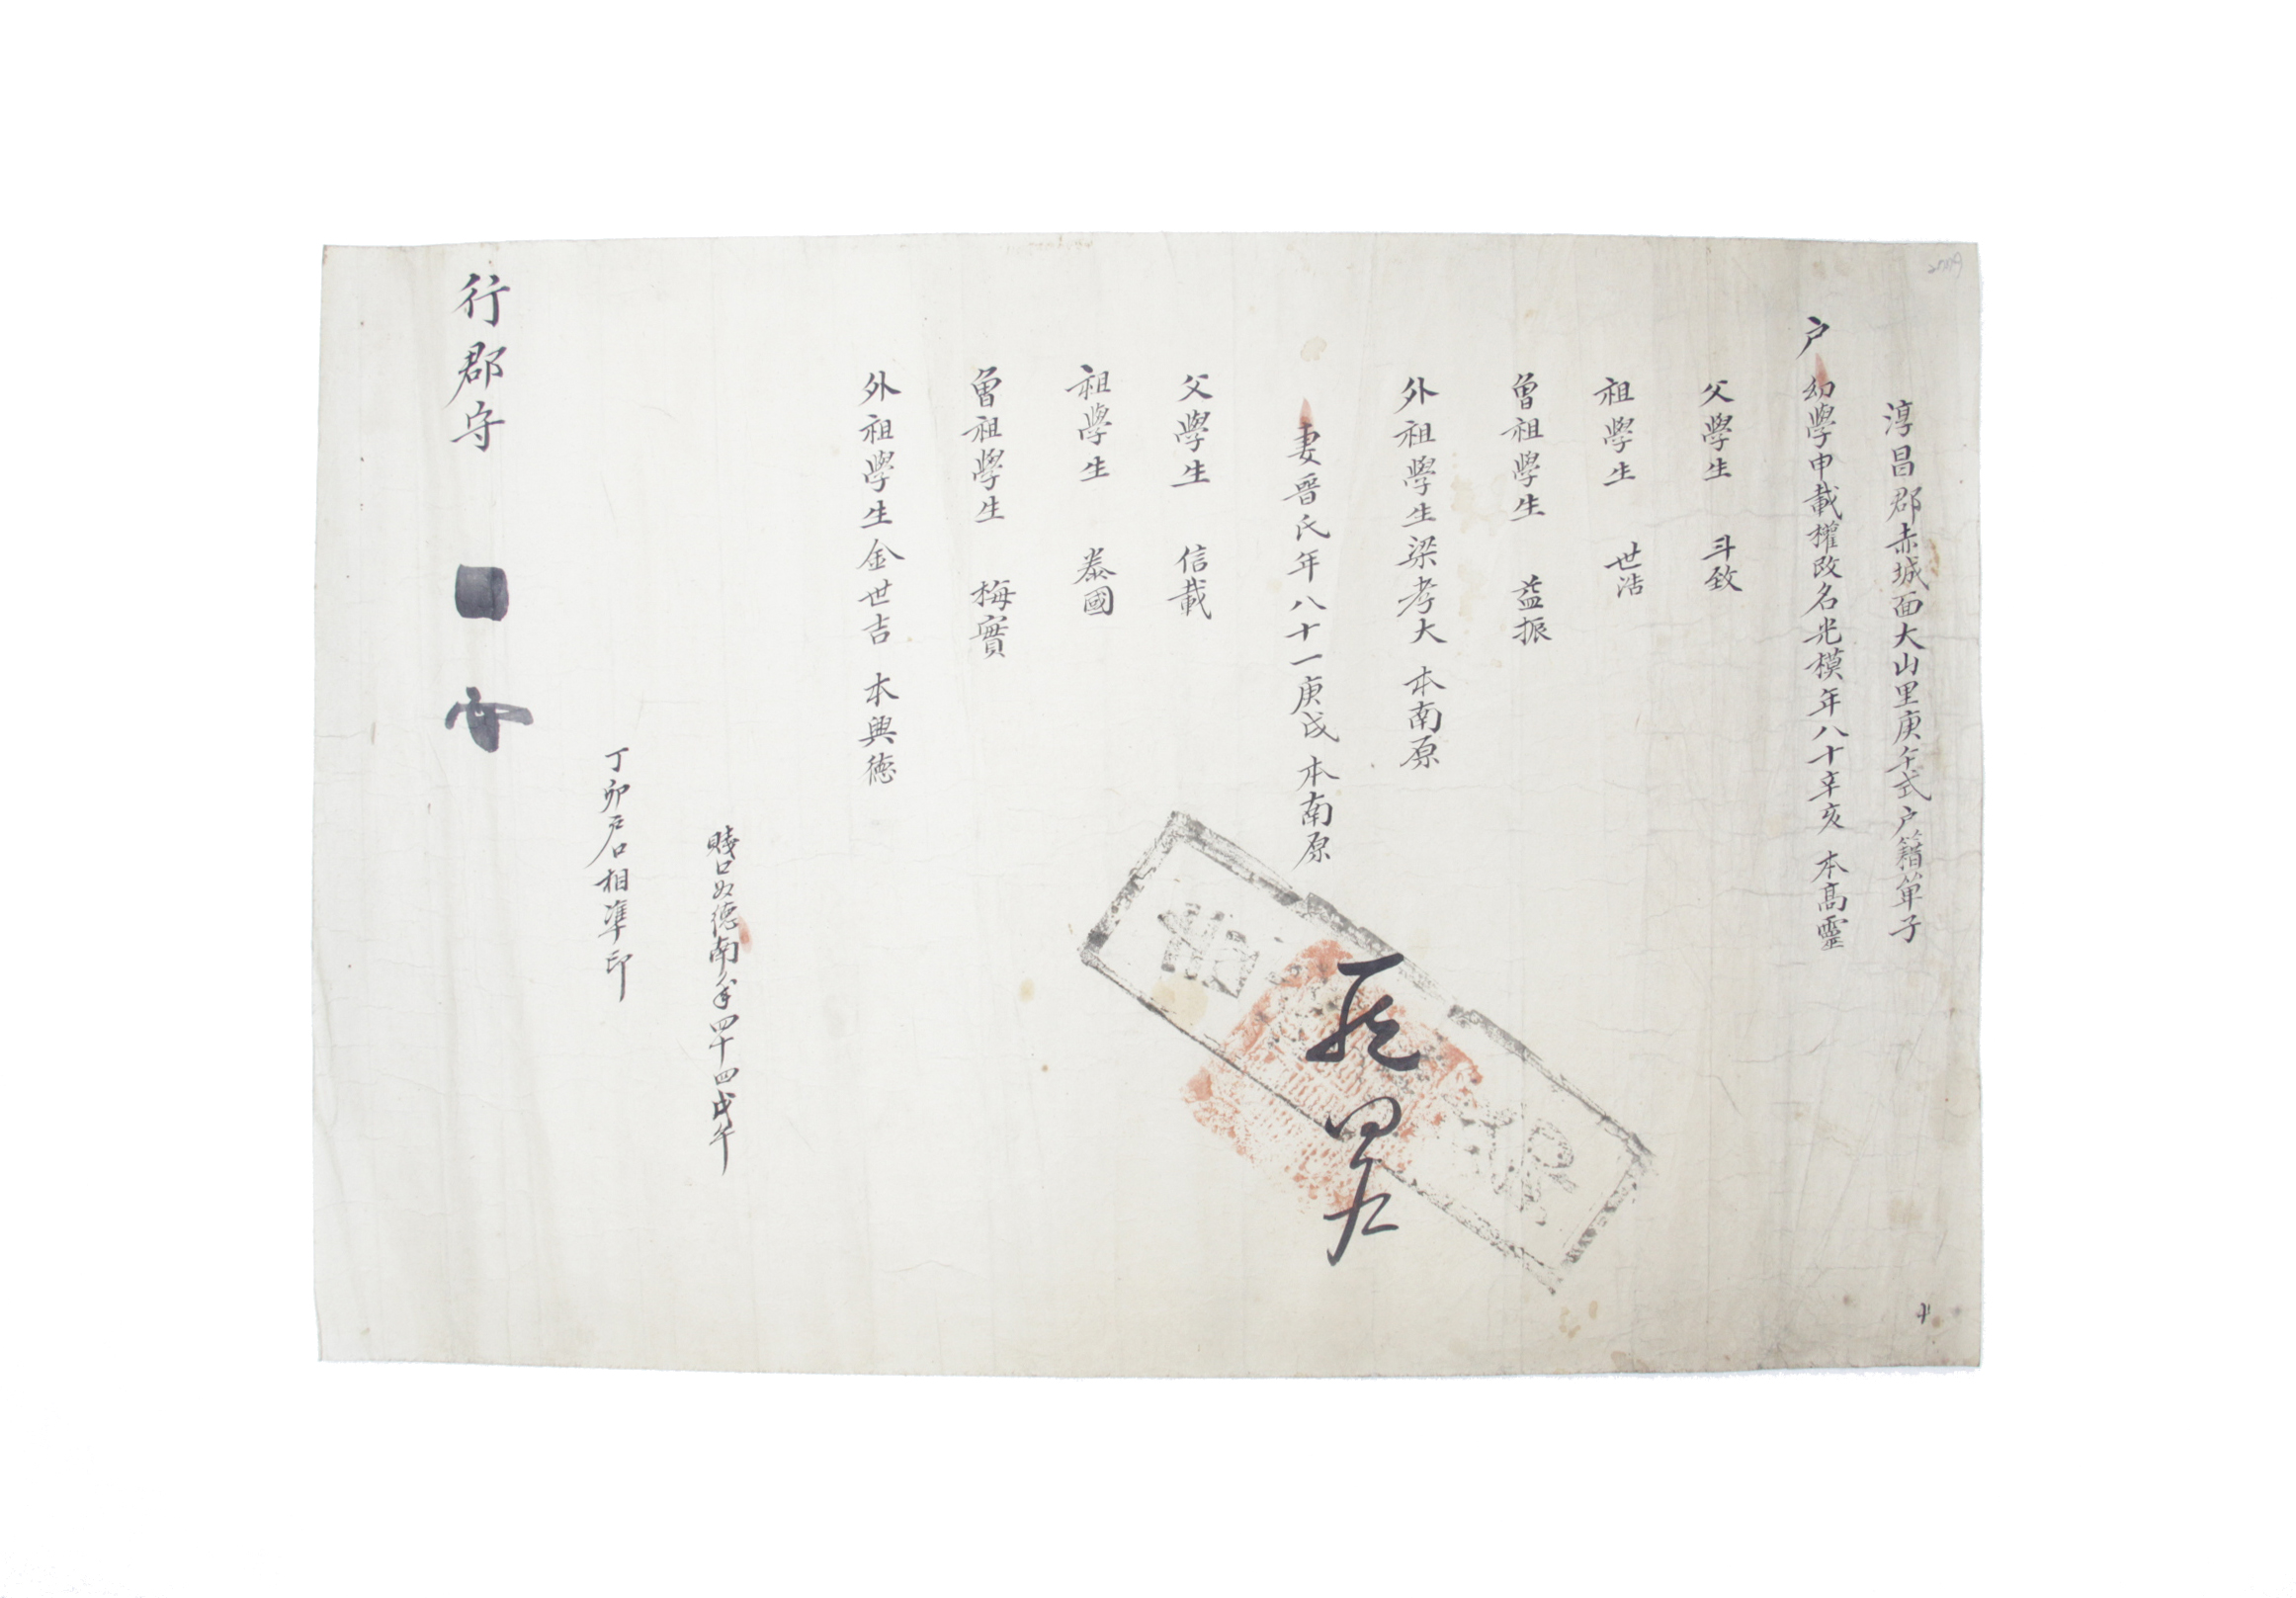 淳昌郡赤城面大山里庚午式户籍单子
户
幼學申載權改名光模年八十辛亥 本高靈
父學生 斗致
祖學生 世浩
曾祖學生 益振
外祖學生梁孝大 本南原
妻晋氏年八十一庚戌 本南原
父學生 信載
祖學生 泰國
曾祖學生 梅實
外祖學生金世吉 本興德
賤口奴德南年四十四戊午
丁卯户口相準印
行郡守